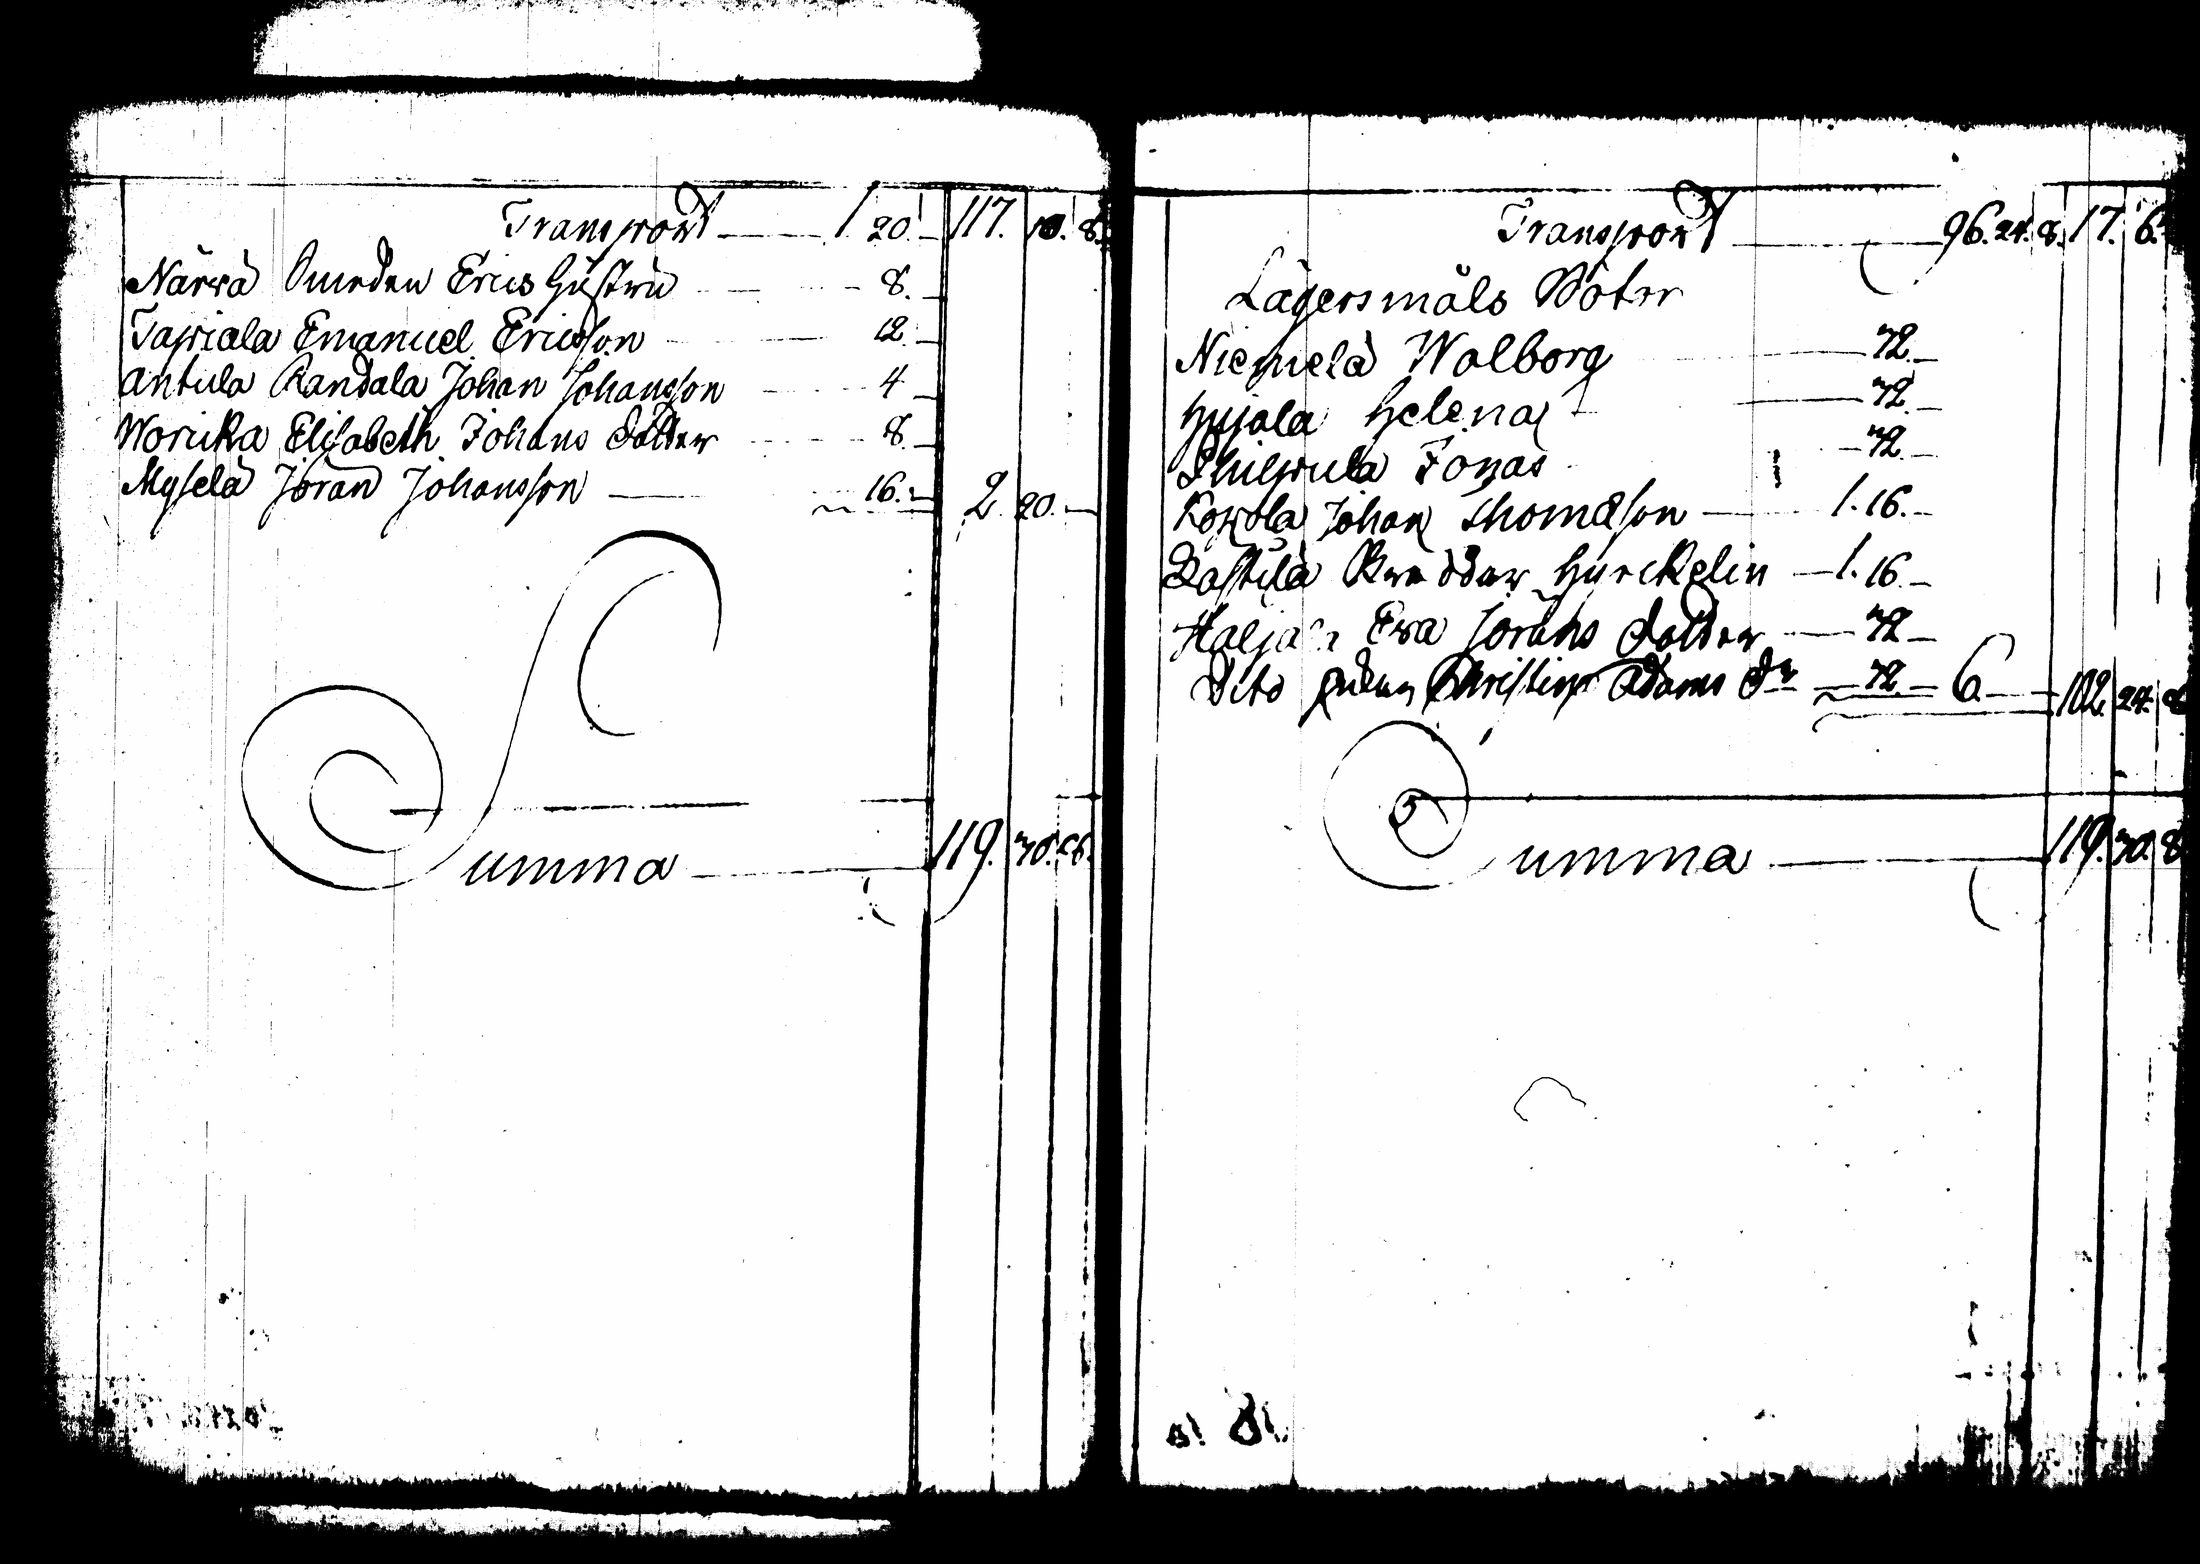 Transport 1 20. 117. 10. 8.
Närvä Erics Hustru 8.
Tapiala Emanuel Ericsson 12.
Antula Randala Johan Johansson 4
Woruka Elisabeth Johans dotter 8.
Myselä Jöran Johansson 16. 2. 20.
Summa 119. 30. 8.
Transport 96. 24. 8. 17. 6.
Lägersmåls Böter
Niemelä Walborg 72.
Hujala Helena 72.
Philpula Jonas 72.
Johan Thomasson 1. 16.
Hurckelin 1. 16.
Eva Jörans dotter 72
Dito Christina Adams dr 72. 6. 102. 24. 8
Summa 119. 30. 8